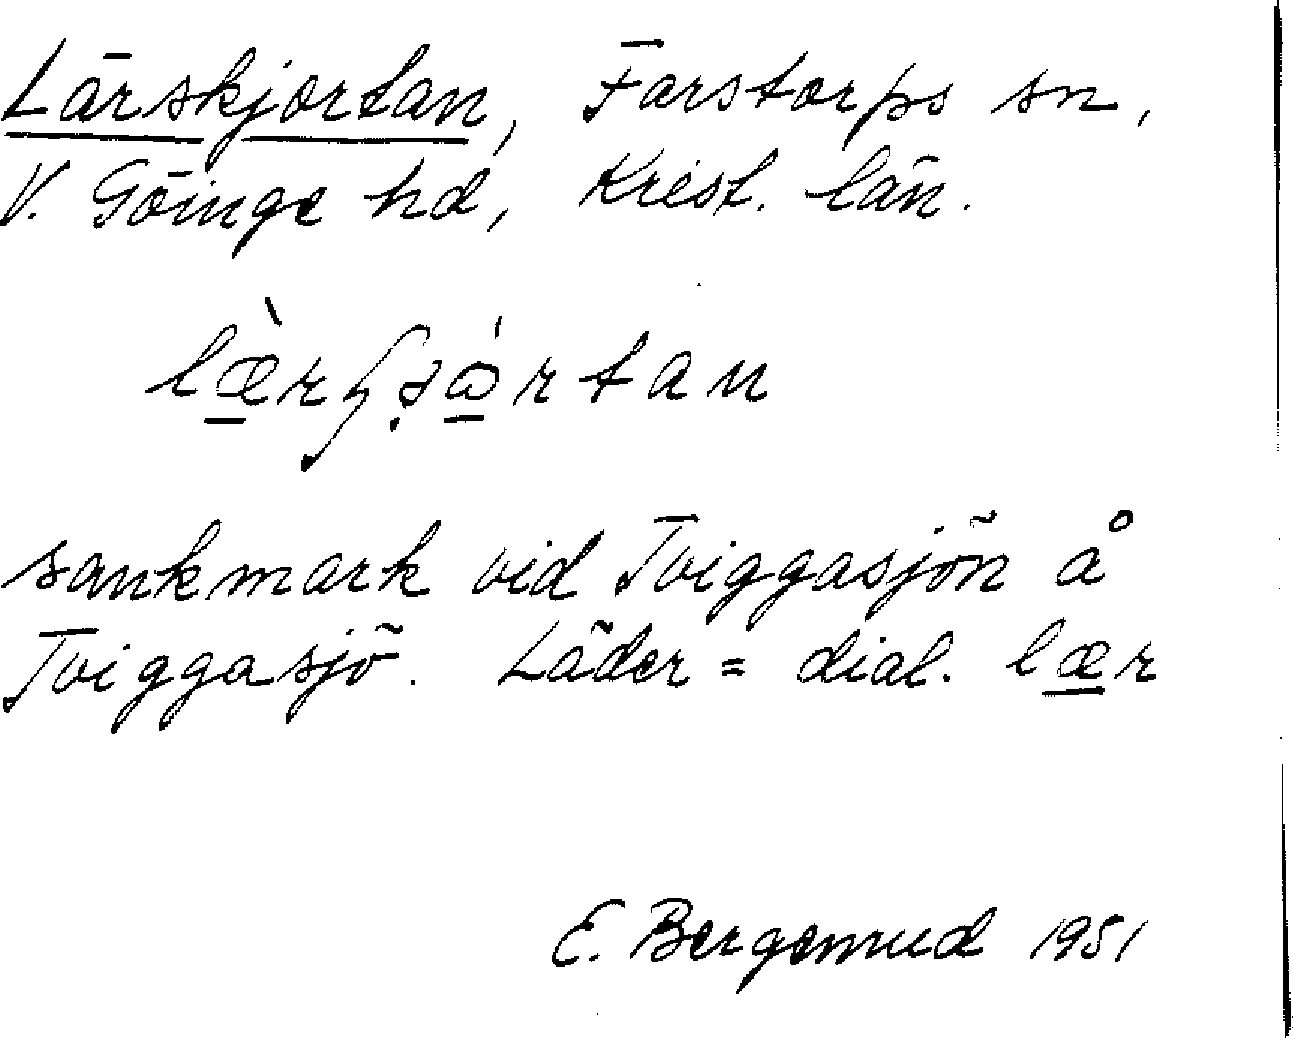 Lärskjortan, Farstorps sn,
V. Göinge hd, Krist. län.
sankmark vid Tviggasjön å
Tviggasjö. Läder = dial. lær
E. Bergemrud 1951